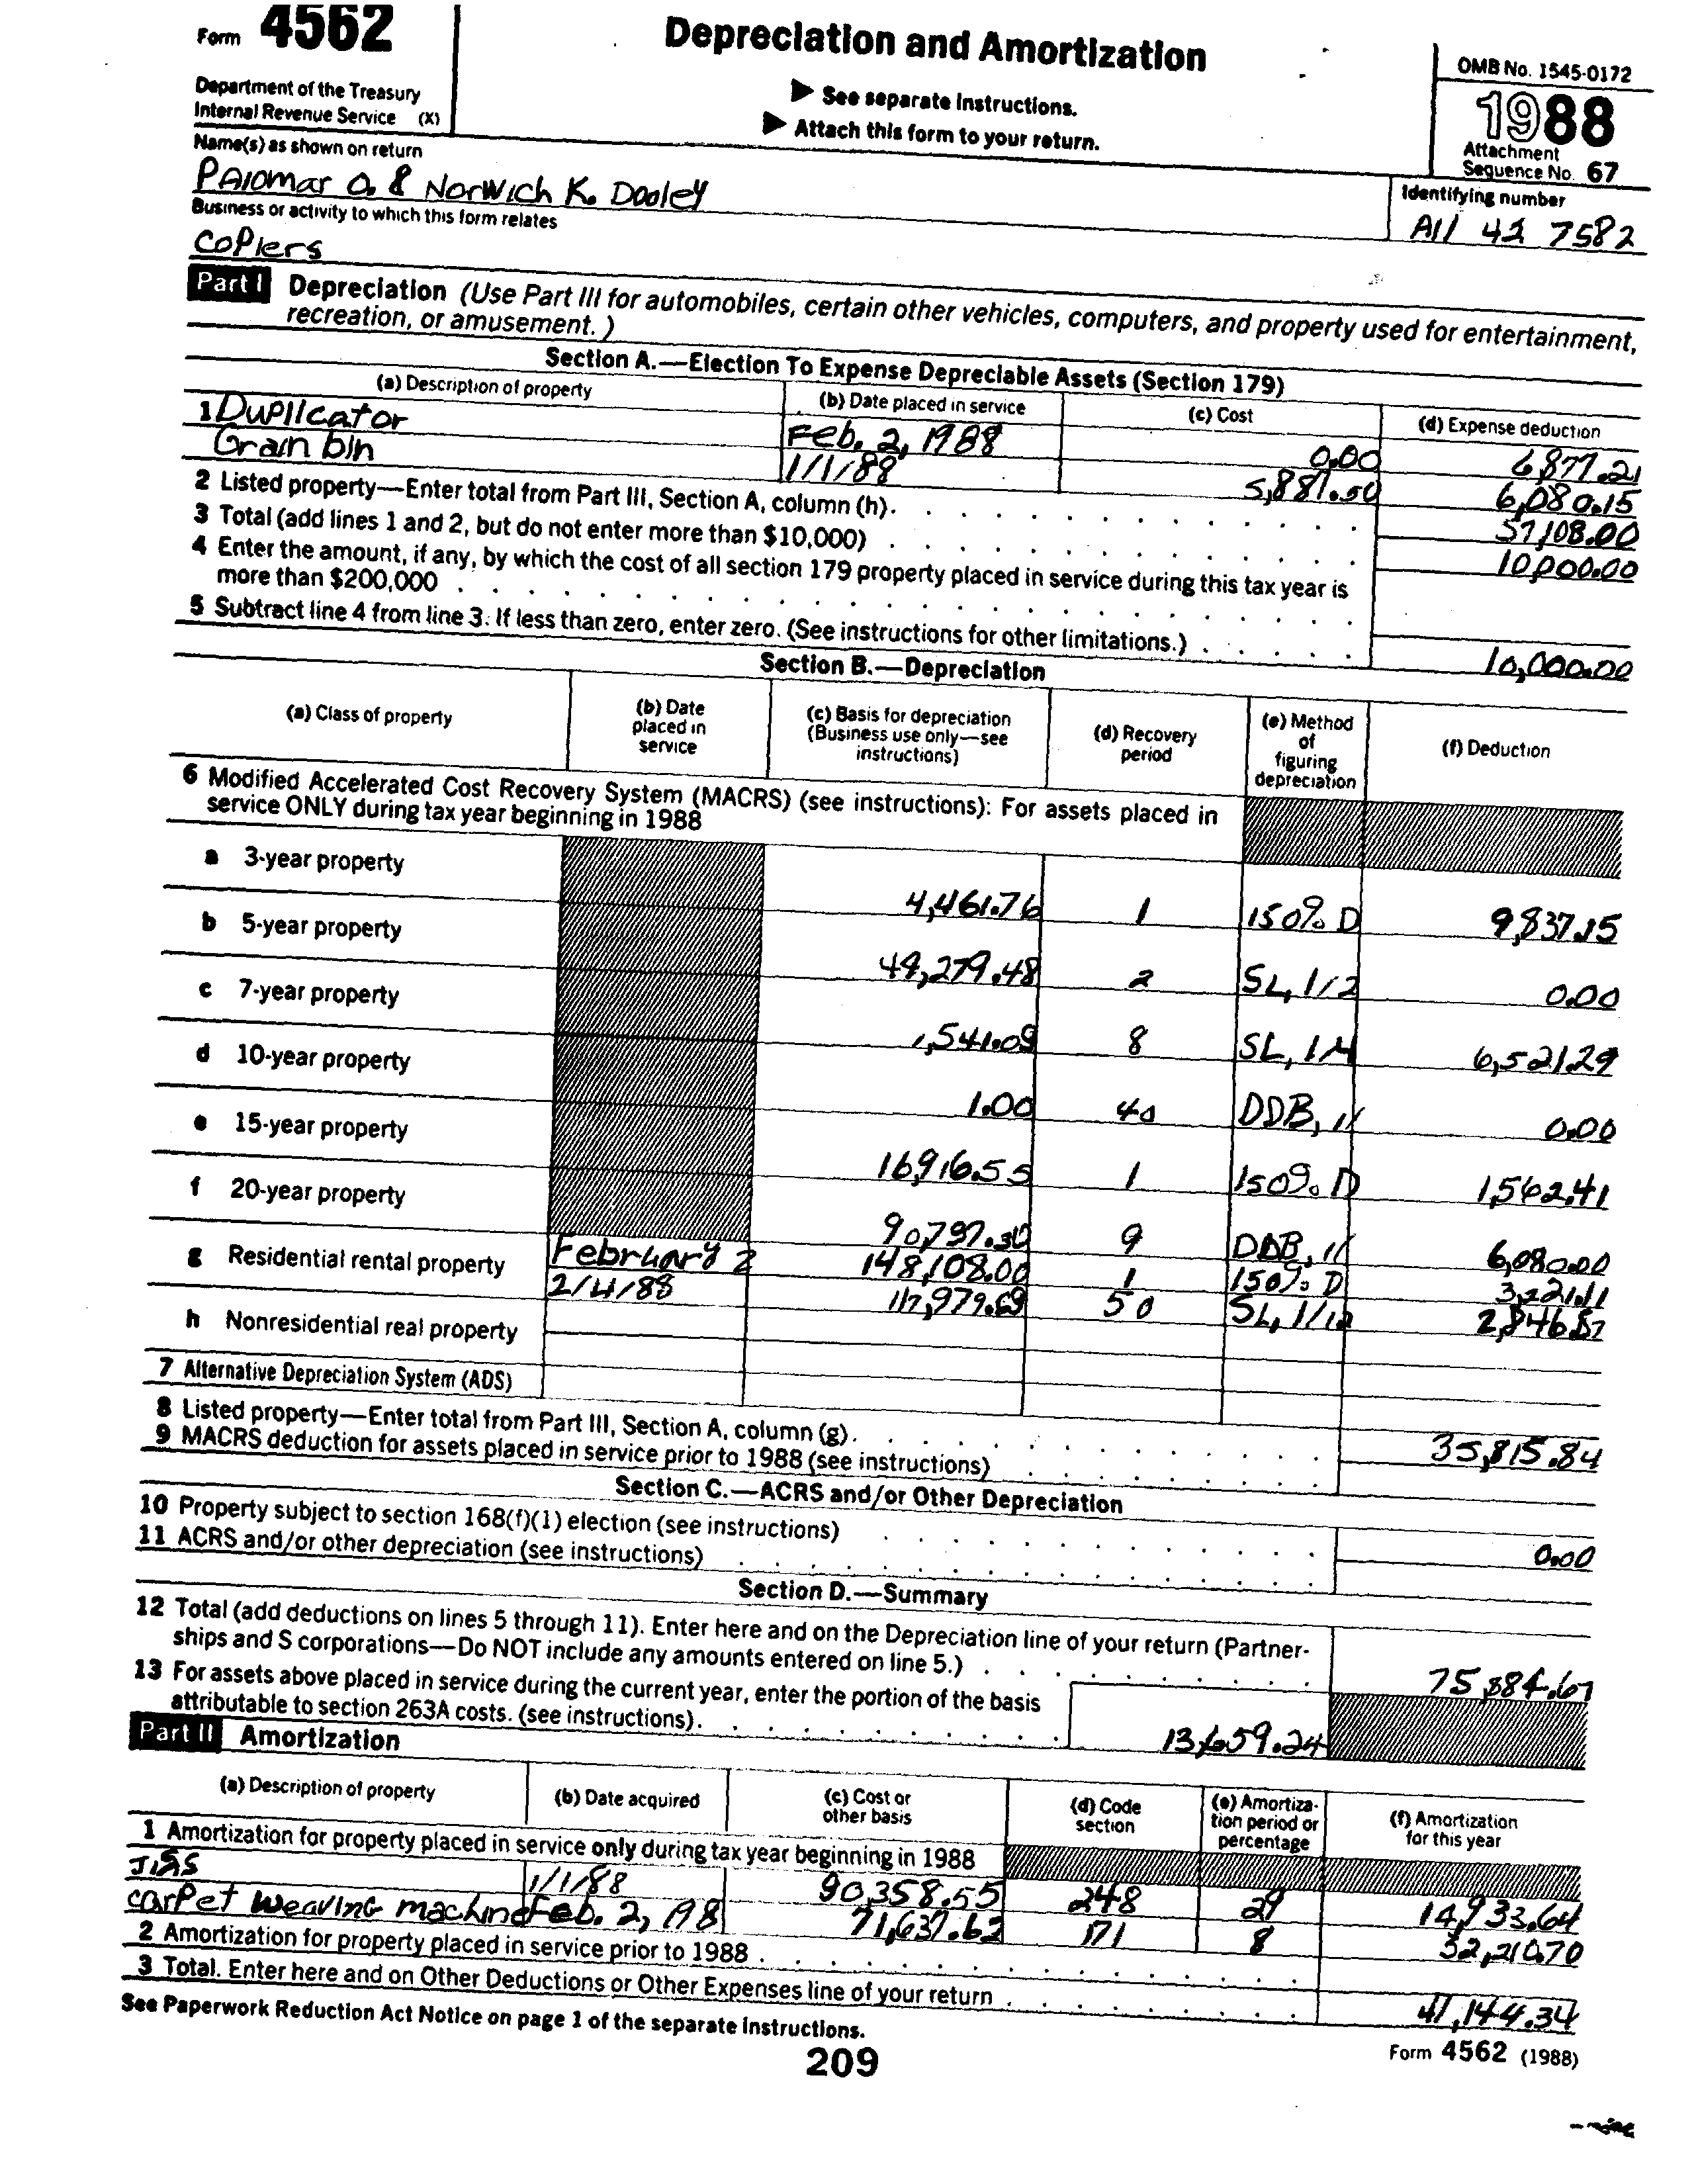 Form 4562
Depreciation and Amortization
OMB No. 1545-0172
Department of the Treasury
Internal Revenue Service (X)
▶ See separate instructions.
▶ Attach this form to your return.
1988
Attachment
Sequence No. 67
Name(s) as shown on return
Palomar O. & Norwich K. Dooley
Identifying number
A11 42 7582
Business or activity to which this form relates
copiers
Part I Depreciation (Use Part III for automobiles, certain other vehicles, computers, and property used for entertainment,
recreation, or amusement.)
Section A.—Election To Expense Depreciable Assets (Section 179)
(a) Description of property (b) Date placed in service (c) Cost (d) Expense deduction
1 Duplicator Feb. 2, 1988 0.00 6,877.21
Grain bin 1/1/88 5,881.50 6,080.15
2 Listed property—Enter total from Part III, Section A, column (h). 57,108.00
3 Total (add lines 1 and 2, but do not enter more than $10,000) 10,000.00
4 Enter the amount, if any, by which the cost of all section 179 property placed in service during this tax year is
more than $200,000
5 Subtract line 4 from line 3. If less than zero, enter zero. (See instructions for other limitations.) 10,000.00
Section B.—Depreciation
(a) Class of property (b) Date placed in service (c) Basis for depreciation (Business use only—see instructions) (d) Recovery period (e) Method of figuring depreciation (f) Deduction
6 Modified Accelerated Cost Recovery System (MACRS) (see instructions): For assets placed in
service ONLY during tax year beginning in 1988
a 3-year property 4,461.76 1 150% D 9,837.15
b 5-year property 49,279.48 2 SL, 1/2 0.00
c 7-year property 1,541.09 8 SL, 1/4 6,521.29
d 10-year property 1.00 40 DDB, 1/ 0.00
e 15-year property 16,916.55 1 150% D 1,562.41
f 20-year property 90,797.30 9 DDB, 1/ 6,080.00
g Residential rental property February 2 148,108.00 1 150% D 3,221.11
2/4/88 117,979.69 50 SL, 1/12 2,846.87
h Nonresidential real property
7 Alternative Depreciation System (ADS)
8 Listed property—Enter total from Part III, Section A, column (g). 35,815.84
9 MACRS deduction for assets placed in service prior to 1988 (see instructions)
Section C.—ACRS and/or Other Depreciation
10 Property subject to section 168(f)(1) election (see instructions) 0.00
11 ACRS and/or other depreciation (see instructions)
Section D.—Summary
12 Total (add deductions on lines 5 through 11). Enter here and on the Depreciation line of your return (Partner-
ships and S corporations—Do NOT include any amounts entered on line 5.) 75,884.67
13 For assets above placed in service during the current year, enter the portion of the basis
attributable to section 263A costs. (see instructions). 13,659.24
Part II Amortization
(a) Description of property (b) Date acquired (c) Cost or other basis (d) Code section (e) Amortization period or percentage (f) Amortization for this year
1 Amortization for property placed in service only during tax year beginning in 1988
1/1/88 90,358.55 248 29 14,933.64
carpet weaving machine Feb. 2, 198 71,637.62 171 8 32,210.70
2 Amortization for property placed in service prior to 1988
3 Total. Enter here and on Other Deductions or Other Expenses line of your return 47,144.34
See Paperwork Reduction Act Notice on page 1 of the separate instructions.
209
Form 4562 (1988)